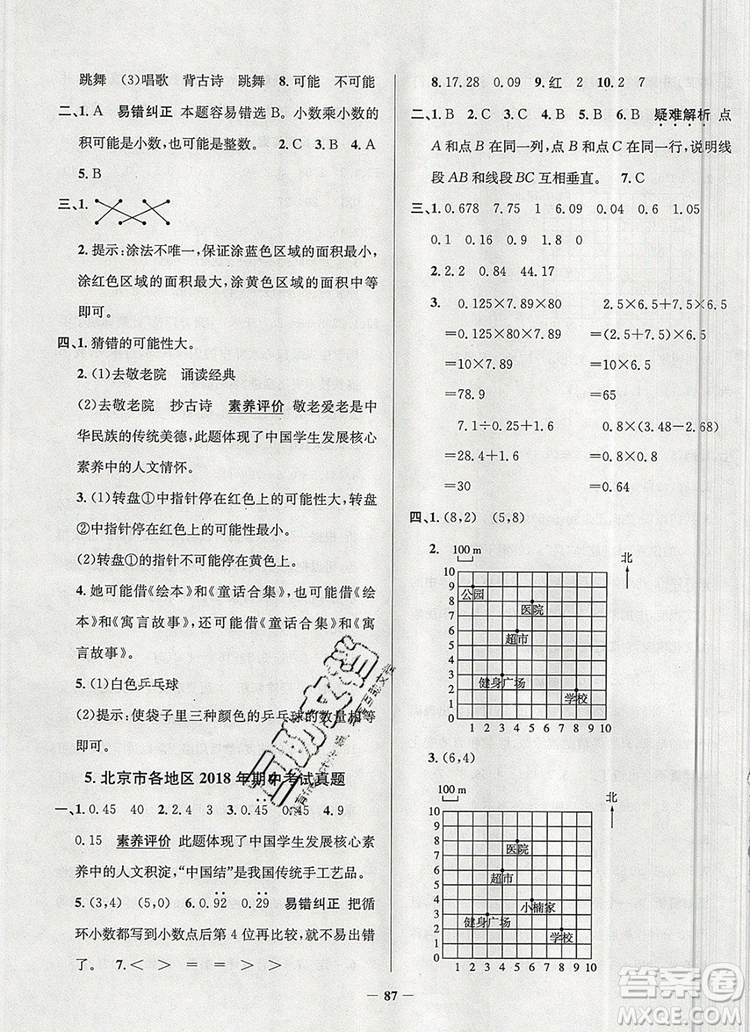 跳舞 (3)唱歌 背古诗 跳舞 8.可能 不可能
二、1.A 易错纠正 本题容易错选B。小数乘小数的
积可能是小数,也可能是整数。 2.C 3.B 4.A
5.B
三、1.
2.提示:涂法不唯一,保证涂蓝色区域的面积最小,
涂红色区域的面积最大,涂黄色区域的面积中等
即可。
四、1.猜错的可能性大。
2.(1)去敬老院 诵读经典
(2)去敬老院 抄古诗 素养评价 敬老爱老是中
华民族的传统美德,此题体现了中国学生发展核心
素养中的人文情怀。
3.(1)转盘①中指针停在红色上的可能性大,转盘
②中指针停在红色上的可能性最小。
(2)转盘①的指针不可能停在黄色上。
4.她可能借《绘本》和《童话合集》,可能借《绘
本》和《寓言故事》,还可能借《童话合集》和《寓
言故事》。
5.(1)白色乒乓球
(2)提示:使袋子里三种颜色的乒乓球的数量相等
即可。
5.北京市各地区2018年期中考试真题
一、1.0.45 40 2.2.4 3 3.0.4̇5̇ 0.45 4.9
0.15 素养评价 此题体现了中国学生发展核心素
养中的人文积淀,“中国结”是我国传统手工艺品。
5.(3,4) (5,0) 6.0.9̇2̇ 0.2̇9̇ 易错纠正 把循
环小数都写到小数点后第4位再比较,就不容易出错
了。 7.< > = > < >
8.17.28 0.09 9.红 10.2 7
二、1.B 2.C 3.A 4.B 5.B 6.B 疑难解析 点
A和点B在同一列,点B和点C在同一行,说明线
段AB和线段BC互相垂直。 7.C
三、1.0.678 7.75 1 0.09 0.4 0.6 1.05
0.1 40 9
2.2.2 0.84 44.17
3. 0.125×7.89×80 2.5×6.5+7.5×6.5
=0.125×80×7.89 =(2.5+7.5)×6.5
=10×7.89 =10×6.5
=78.9 =65
7.1÷0.25+1.6 0.8×(3.48-2.68)
=28.4+1.6 =0.8×0.8
=30 =0.64
四、1.(8,2) (5,8)
2.
100 m
北
10
9
8
7
6
5
4
3
2
1
0
公园
医院
超市
健身广场
学校
1 2 3 4 5 6 7 8 9 10
3.(6,4)
100 m
北
10
9
8
7
6
5
4
3
2
1
0
医院
超市
小楠家
健身广场
学校
1 2 3 4 5 6 7 8 9 10
— 87 —
答案圈
MXQE.COM